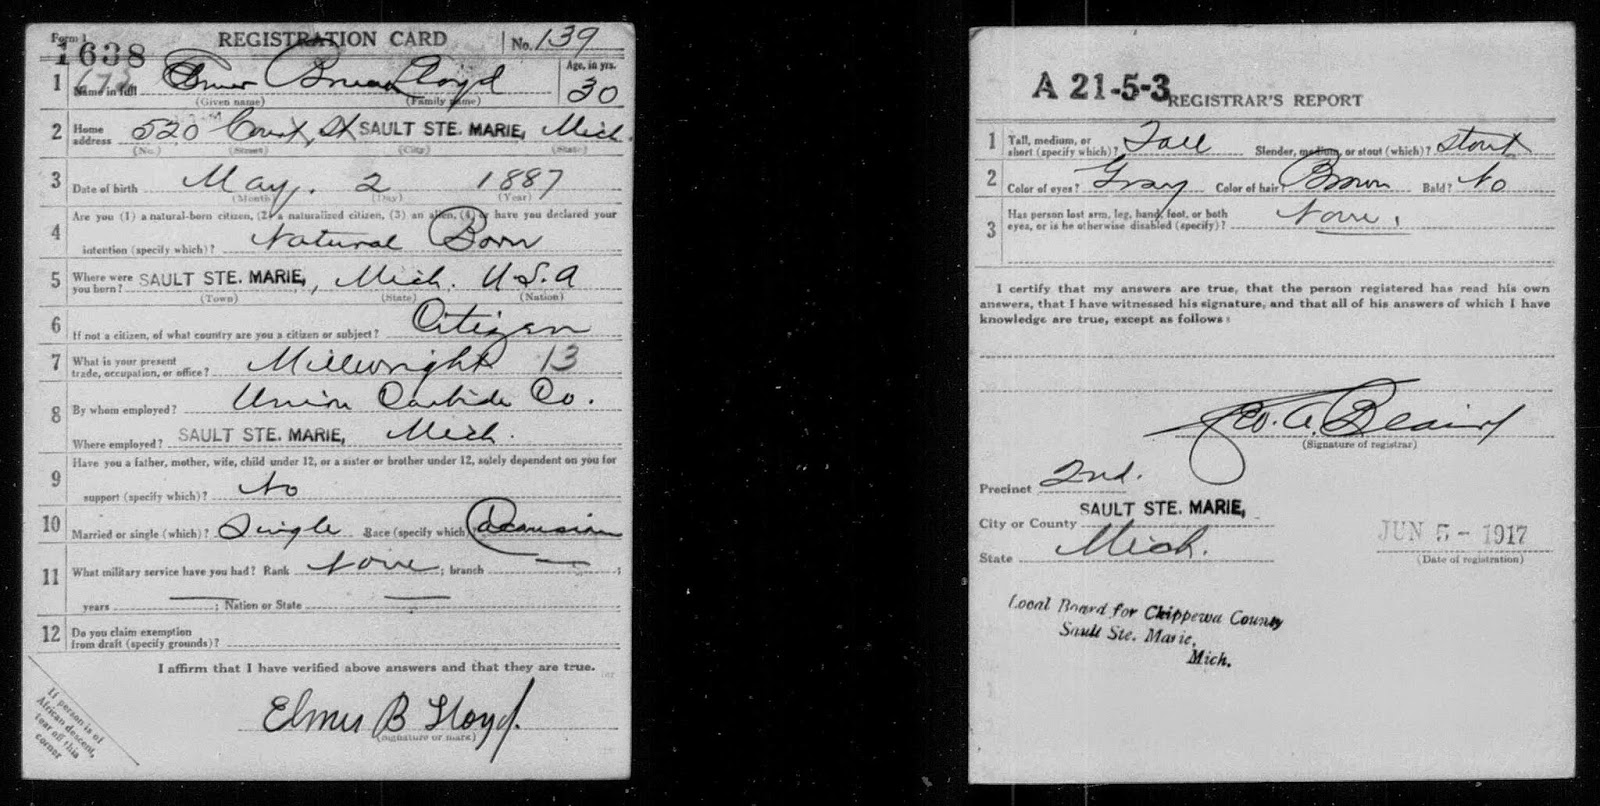 Form 1
1638
REGISTRATION CARD
No. 139
1 Name in full Elmer Lloyd
(Given name) (Family name)
Age, in yrs. 30
2 Home address 520 Court St SAULT STE. MARIE, Mich.
(No.) (Street) (City) (State)
3 Date of birth May. 2 1887
(Month) (Day) (Year)
4 Are you (1) a natural-born citizen, (2) a naturalized citizen, (3) an alien, (4) or have you declared your
intention (specify which)? Natural Born
5 Where were you born? SAULT STE. MARIE, Mich. U.S.A
(Town) (State) (Nation)
6 If not a citizen, of what country are you a citizen or subject? Citizen
7 What is your present trade, occupation, or office? Millwright 13
8 By whom employed? Union Carbide Co.
Where employed? SAULT STE. MARIE, Mich.
9 Have you a father, mother, wife, child under 12, or a sister or brother under 12, solely dependent on you for
support (specify which)? No
10 Married or single (which)? Single Race (specify which)
11 What military service have you had? Rank None; branch —;
years —; Nation or State —
12 Do you claim exemption
from draft (specify grounds)?
I affirm that I have verified above answers and that they are true.
Elmer B Lloyd.
(Signature or mark)
If person is of
African descent,
tear off this
corner
A 21-5-3 REGISTRAR'S REPORT
1 Tall, medium, or short (specify which)? Tall Slender, medium, or stout (which)? stout
2 Color of eyes? Gray Color of hair? Brown Bald? No
3 Has person lost arm, leg, hand, foot, or both
eyes, or is he otherwise disabled (specify)? None.
I certify that my answers are true, that the person registered has read his own
answers, that I have witnessed his signature, and that all of his answers of which I have
knowledge are true, except as follows:
Geo. A.
(Signature of registrar)
Precinct 2nd.
City or County SAULT STE. MARIE,
State Mich.
JUN 5 - 1917
(Date of registration)
Local Board for Chippewa County
Sault Ste. Marie,
Mich.